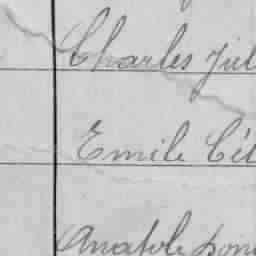 Charles Jul
Emile Cél
Anatole